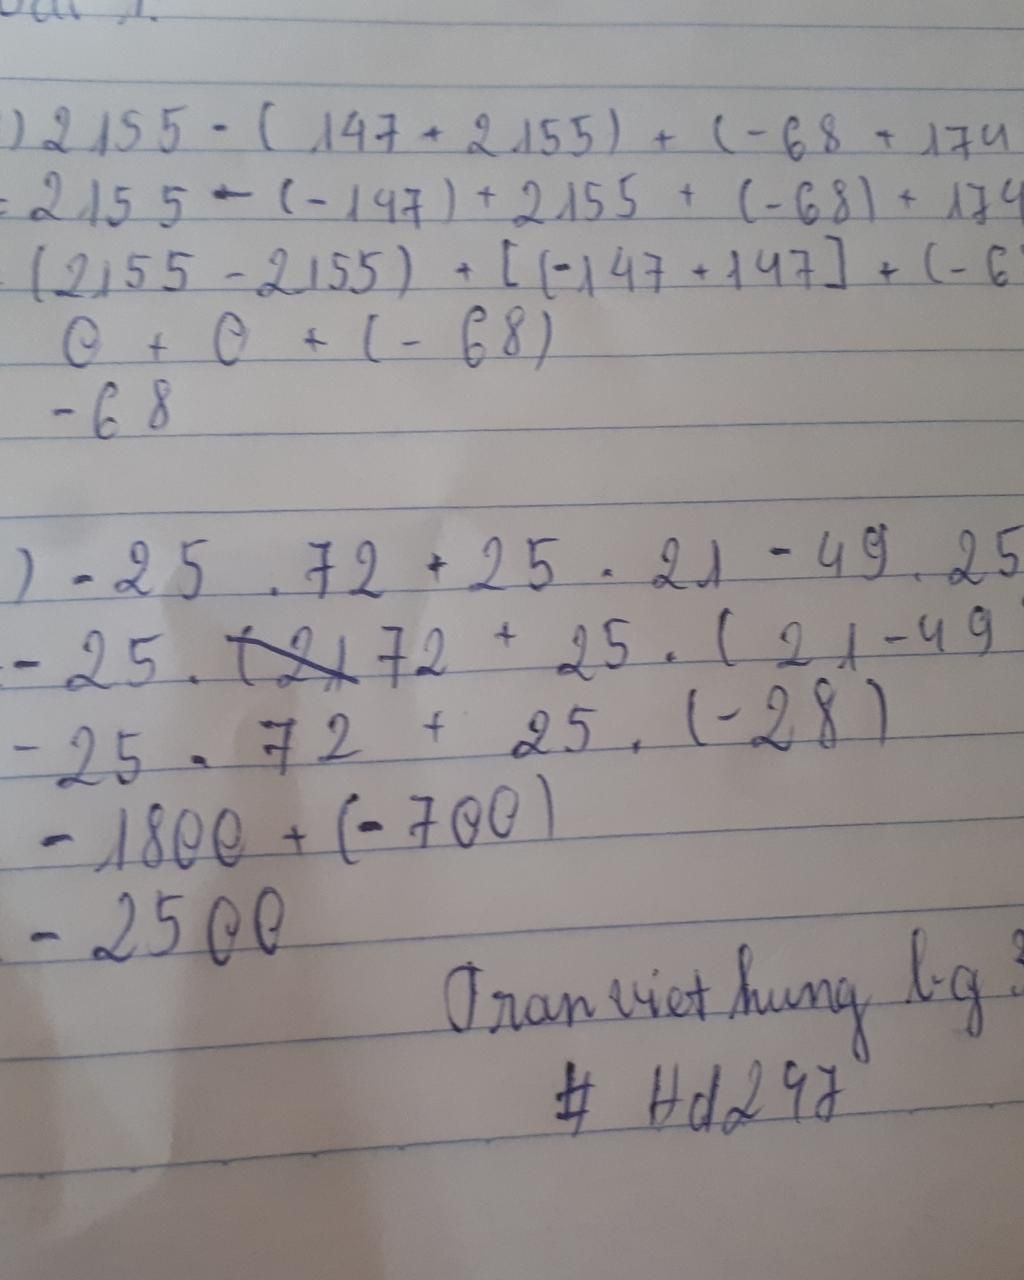 ) 2155 - ( 147 + 2155) + (-68 + 174
= 2155 - (-147) + 2155 + (-68) + 174
(2155 - 2155) + [(-147 + 147] + (-6
0 + 0 + (- 68)
-68
) - 25 . 72 + 25 . 21 - 49 . 25
- 25 . 72 + 25 . ( 21 - 49
- 25 . 72 + 25 . (-28)
- 1800 + (- 700)
- 2500
Tran viet hung
# Hd247